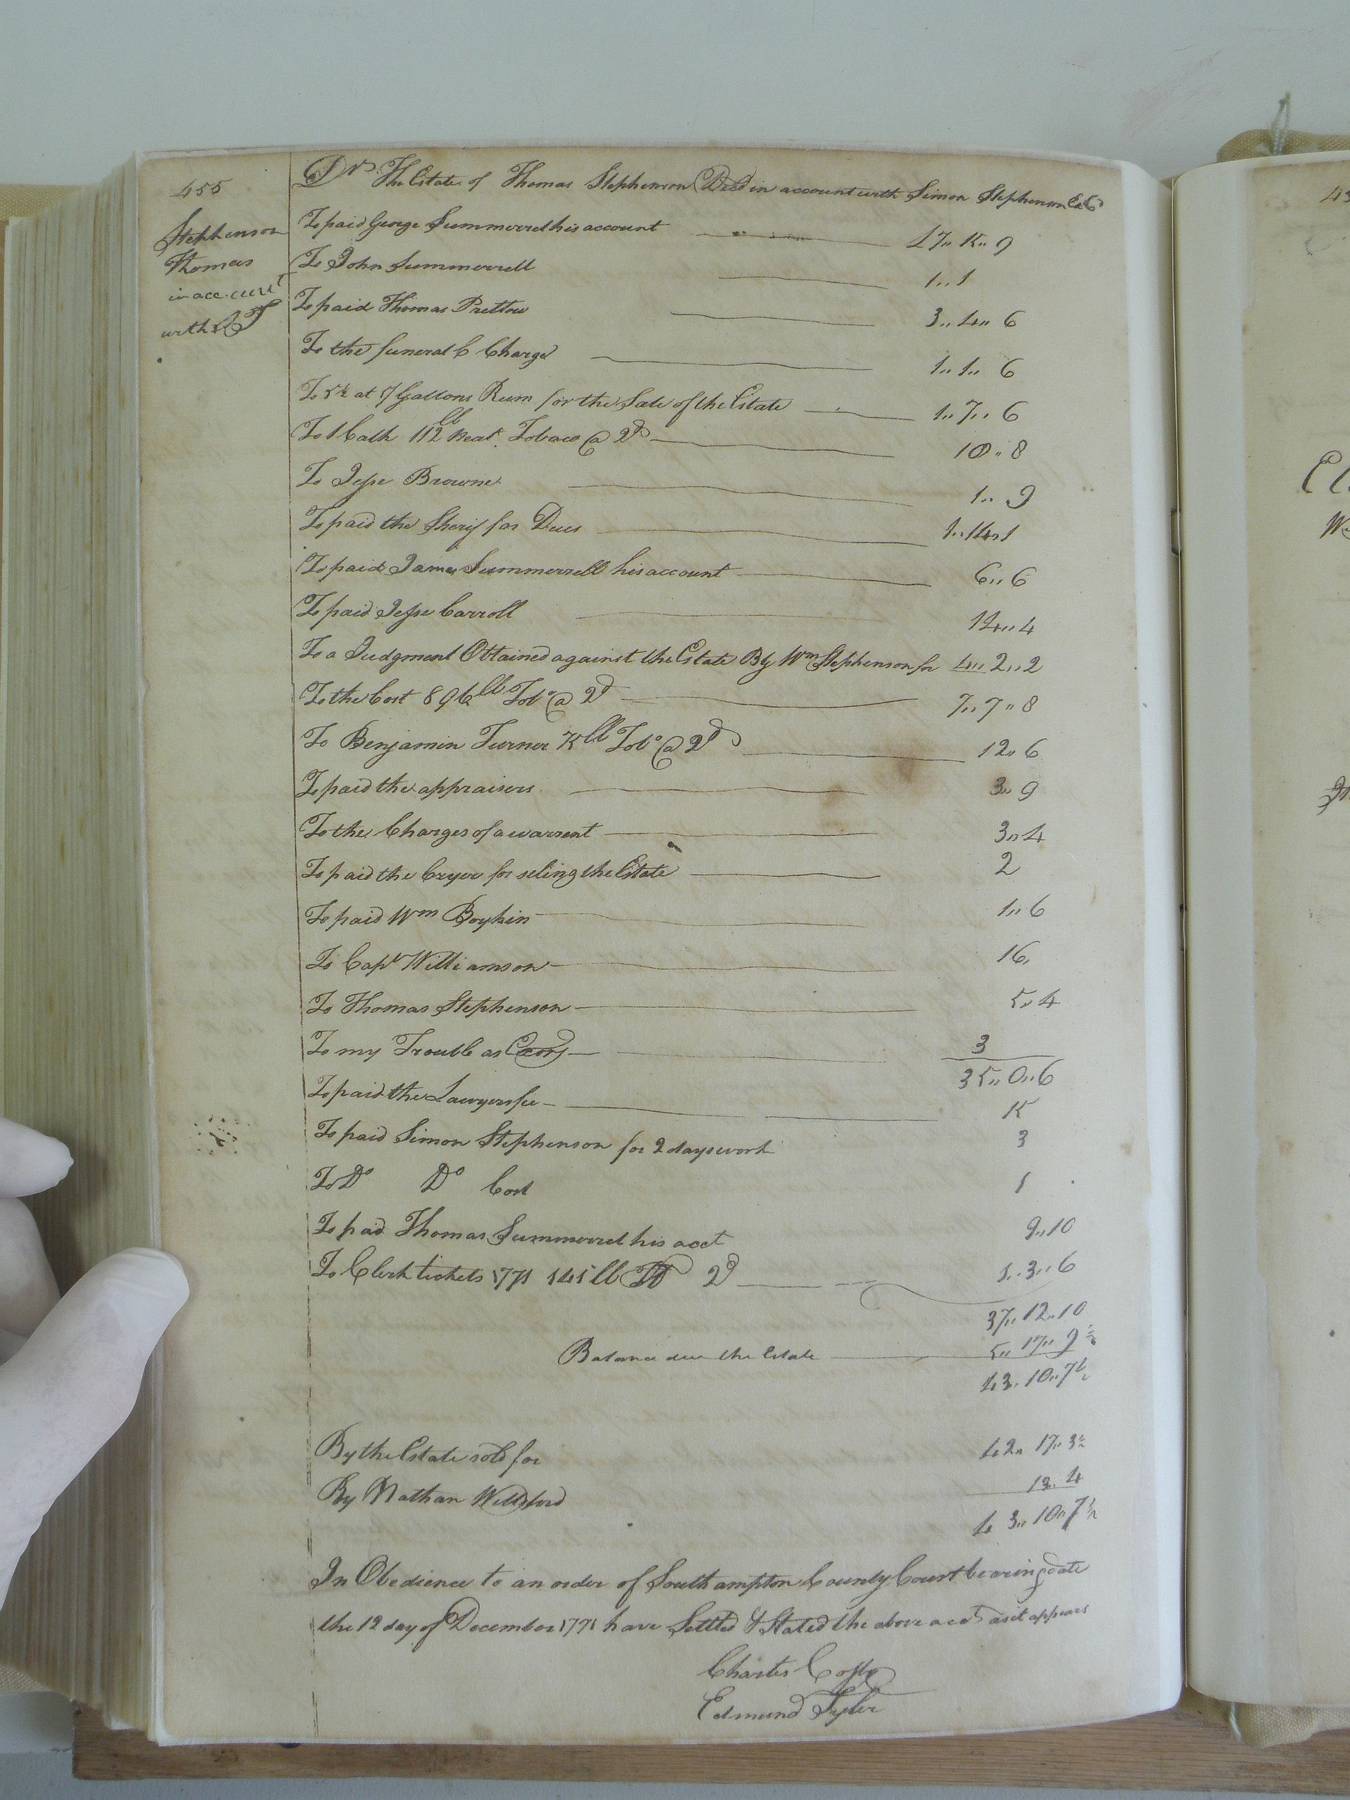 455
Drs The Estate of Thomas Stephenson Decd in account with Simon Stephenson Exr
Stephenson
Thomas
in accout
with
To paid George Summerrel his account 17,, 15,, 9
To John Summerrell 1,, 1
To paid Thomas Pretlow 3,, 4,, 6
To the funeral Charge 1,, 1,, 6
To at 7 Gallons Rum for the Sale of the Estate 1,, 7,, 6
To 112 lb neat Tobaco @ 2d 18,, 8
To Jesse Browne 1,, 9
To paid the Sherif for Dues 1,, 14,, 1
To paid James Summerrell his account 6,, 6
To paid Jesse Carroll 14,, 4
To a Judgment Obtained against the Estate By Wm Stephenson for 4,, 2,, 2
To the Cost 896 lb Tobo @ 2d 7,, 7,, 8
To Benjamin Turner 75 lb Tobo @ 2d 12,, 6
To paid the appraisers 3,, 9
To the Charges of a warrent 3,, 4
To paid the Cryer for seling the Estate 2
To paid Wm Boykin 1,, 6
To Capt Williamson 16,
To Thomas Stephenson 5,, 4
To my Trouble as Exor 3
35,, 0,, 6
To paid the Lawyers fee 15
To paid Simon Stephenson for 2 days work 3
To Do Do Cost 1
To paid Thomas Summerrel his acct 9,, 10
To Clerk tickets 1771 141 lb To 2d 1,, 3,, 6
37,, 12,, 10
Balance due the Estate 5,, 17,, 9 1/2
43,, 10,, 7 1/2
By the Estate sold for 42,, 17,, 3 1/2
By Nathan Willeford 13,, 4
43,, 10,, 7 1/2
In Obedience to an order of Southampton County Court bearing date
the 12 day of December 1771 have Settled & Stated the above acct as it appears
Charles Cosby
Edmund Tyler